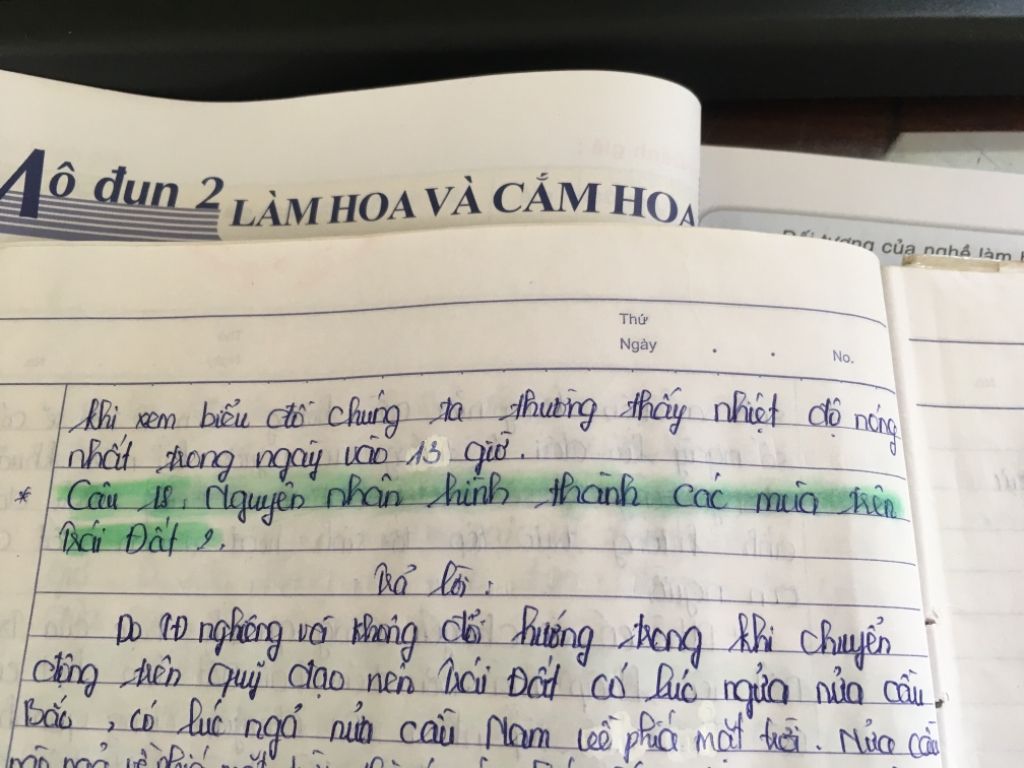 Mô đun 2 LÀM HOA VÀ CẮM HOA
Đối tượng của nghề làm
Thứ
Ngày . . No.
khi xem biểu đồ chúng ta thường thấy nhiệt độ nóng
nhất trong ngày vào 13 giờ.
* Câu 18. Nguyên nhân hình thành các mùa trên
Trái Đất ?.
Trả lời :
Do TĐ nghiêng và không đổi hướng trong khi chuyển
động trên quỹ đạo nên Trái Đất có lúc ngửa nửa cầu
Bắc, có lúc ngả nửa cầu Nam về phía mặt trời. Nửa cầu
nào ngả về phía mặt